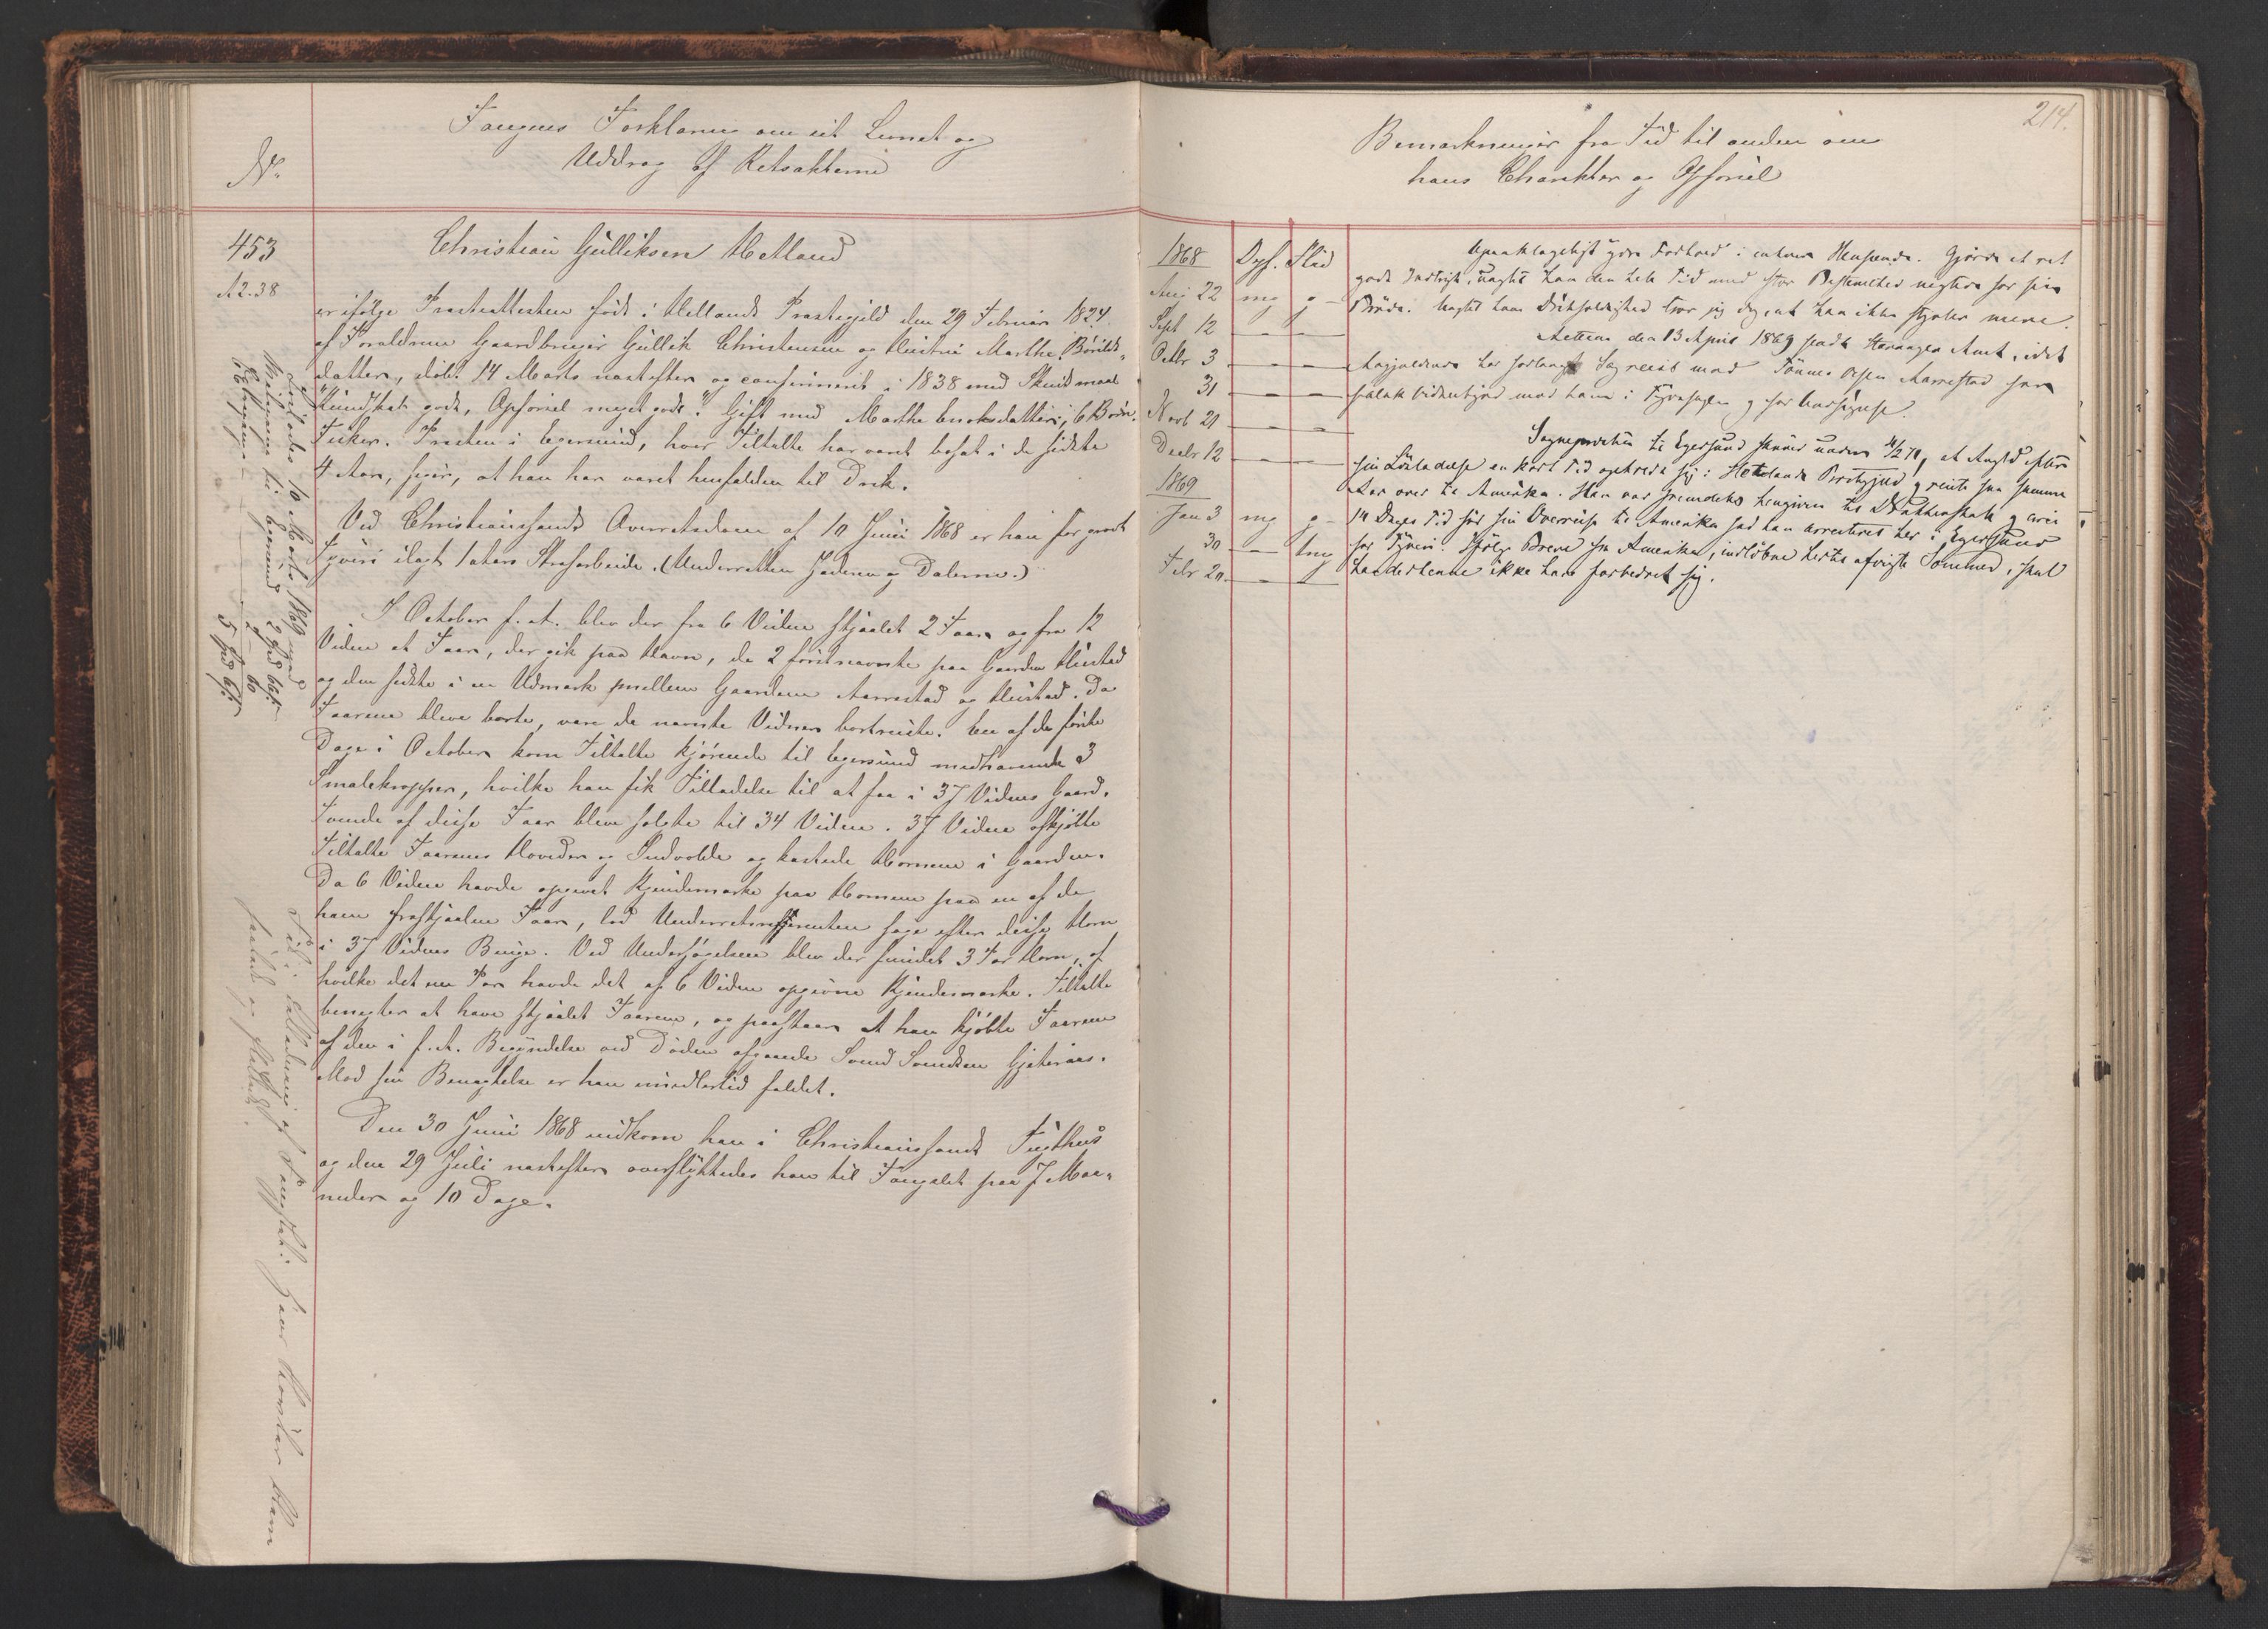 No.
Fangens Forklaring om sit Levnet og
Uddrag af Retsakterne
453
A2.38
Christian Gulliksen Hetland
er ifølge Præsteattesten født i Hetlands Præstegjeld den 29 Februar 1824.
af Forældrene Gaardbruger Gullik Christensen og Hustru Marthe Børilds-
datter, døbt 14 Marts næstefter og confirmeret i 1838 med Skudsmaal
"Kundskab godt, Opførsel meget godt". Gift med Marthe Enoksdatter, 6 Børn.
Fisker. Præsten i Egersund, hvor Tiltalte har været bosat i de sidste
4 Aar, siger, at han har været henfalden til Drik.
Ved Christianssands Overretsdom af 10 Juni 1868 er han for groft
Tyveri ilagt 1 Aars Strafarbeide. (Underretten Jæderen og Dalerne.)
I October f. A. blev der fra 6 Vidne stjaalet 2 Faar og fra 12
Vidne et Faar, der gik paa Havn, de 2 førstnævnte paa Gaarden Hustad
og den sidste i en Udmark mellem Gaardene Aarrestad og Hustad. Da
Faarene bleve borte, vare de nævnte Vidner bortreiste. En af de første
Dage i October kom Tiltalte kjørende til Egersund medhavende 3
Smalekropper, hvilke han fik Tilladelse til at faa i 37 Vidnes Gaard.
Tvende af disse Faar bleve solgte til 34 Vidne. 37 Vidne afkjøbte
Tiltalte Faarenes Hoveder og Indvolde og kastede Hornene i Gaarden.
Da 6 Vidne havde opgivet Kjendemærke paa Hornene paa en af de
ham frastjaalne Faar, lod Underretsassistenten søge efter disse Horn
i 37 Vidnes Binge. Ved Undersøgelsen blev der fundet 3 Par Horn, af
hvilke det ene Par havde det af 6 Vidne opgivne Kjendemærke. Tiltalte
benegter at have stjaalet Faarene, og paastaar at han kjøbte Faarene
af den i f. A. Begyndelse ved Døden afgaaede Svend Svendsen
Mod sin Benægtelse er han imidlertid fældet.
Den 30 Juni 1868 indkom han i Christianssands Tugthus
og den 29 Juli næstefter overflyttedes han til Fængslet paa 7 Maa-
neder og 10 Dage.
Løslodes 10 Marts 1869 med
til Egersund 2 Spd 66 s
2 – 60
5 Spd 6 s
Tid i
214.
Bemærkninger fra Tid til anden om
hans Charakter og Opførsel
1868 Opf. Flid
Aug 22 mg g
Sept 12 — —
Octbr 3 — —
31 — —
Novb 21 — —
Decbr 12 — —
1869
Jan 3 mg g
30 — tmg
Febr 20 — —
Upaaklageligt ydre Forhold i enhver Henseende. Gjorde et ret
godt Indtryk, uagtet han den hele Tid med stor Bestemthed negtede for sin
Brøde. Uagtet hans Drikfældighed tror jeg dog, at han ikke stjæler mere.
Akterne den 13 April 1869 sendt Stavanger Amt, idet
Angjældende har forlangt Sag reist mod Tønnes Olsen Aarrestad for
falsk Vidnesbyrd mod ham i Tyvesagen og for Ærefornærmelse.
Sognepræsten til Egersund skriver under 4/2 70, at Angjld. efter
sin Løsladelse en kort Tid opholdt sig i Hetlands Præstegjeld og reiste saa samme
Aar over til Amerika. Han var fremdeles hengiven til Drukkenskab og circa
14 Dages Tid før sin Overreise til Amerika sad han arresteret her i Egersund
for Tyveri. Ifølge Breve fra Amerika, indløbne hertil afvigte Sommer, skal
han derhenne ikke have forbedret sig.